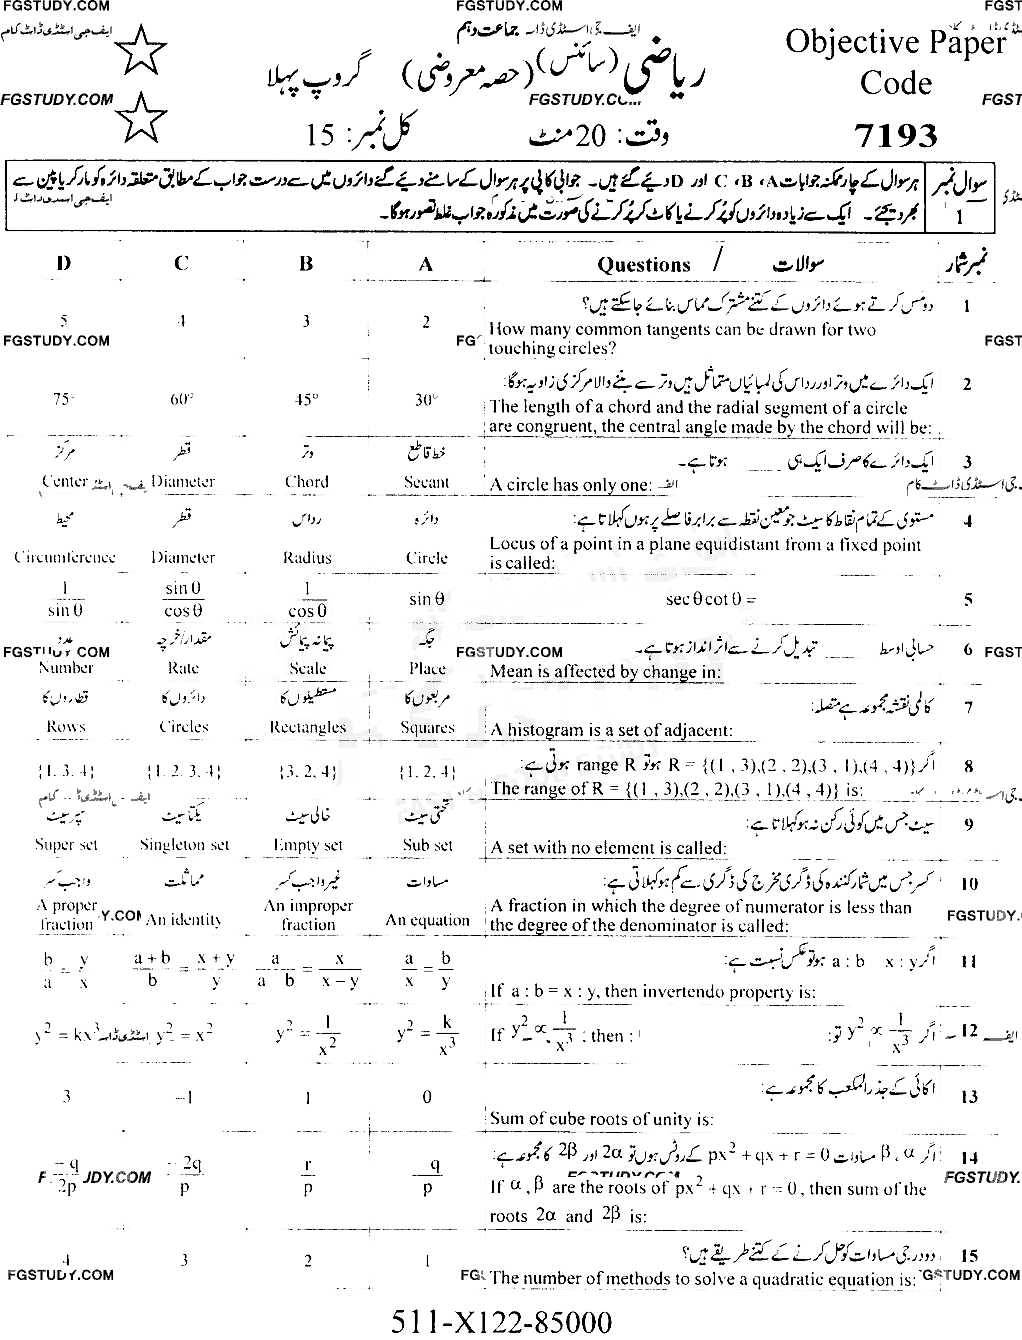 FGSTUDY.COM FGSTUDY.COM FGST
ایف جی اسٹڈی ڈاٹ کام جماعت دہم
Objective Paper
Code
7193
ریاضی (سائنس) (حصہ معروضی) گروپ پہلا
FGSTUDY.COM FGST
وقت: 20 منٹ کل نمبر: 15
سوال نمبر 1
ہر سوال کے چار ممکنہ جوابات A، B، C اور D دیئے گئے ہیں۔ جوابی کاپی پر ہر سوال کے سامنے دیئے گئے دائروں میں سے درست جواب کے مطابق متعلقہ دائرہ کو مارکر یا پین سے
بھر دیجئے۔ ایک سے زیادہ دائروں کو پُر کرنے یا کاٹ کر پُر کرنے کی صورت میں مذکورہ جواب غلط تصور ہوگا۔
D C B A Questions / سوالات نمبر شمار
1 دو مس کرتے ہوئے دائروں کے کتنے مشترک مماس بنائے جا سکتے ہیں؟
5 4 3 2 How many common tangents can be drawn for two
touching circles?
FGSTUDY.COM FGST
2 ایک دائرے میں وتر اور رداس کی لمبائیاں متماثل ہیں وتر سے بننے والا مرکزی زاویہ ہوگا:
75° 60° 45° 30° The length of a chord and the radial segment of a circle
are congruent, the central angle made by the chord will be:
3 ایک دائرے کا صرف ایک ہی ____ ہوتا ہے۔
مرکز قطر وتر خط قاطع
Center Diameter Chord Secant A circle has only one:
4 مستوی کے تمام نقاط کا سیٹ جو معین نقطہ سے برابر فاصلے پر ہوں کہلاتا ہے:
محیط قطر رداس دائرہ
Circumference Diameter Radius Circle Locus of a point in a plane equidistant from a fixed point
is called:
5 sec θ cot θ =
1/sin θ sin θ/cos θ 1/cos θ sin θ
6 حسابی اوسط ____ تبدیل کرنے سے اثر انداز ہوتا ہے۔
FGSTUDY.COM FGSTUDY.COM FGST
عدد مقدار/خرچہ پیمانہ پیمائش جگہ
Number Rate Scale Place Mean is affected by change in:
7 کالمی نقشہ مجموعہ ہے متصلہ:
قطاروں کا دائروں کا مستطیلوں کا مربعوں کا
Rows Circles Rectangles Squares A histogram is a set of adjacent:
8 اگر R = {(1 , 3),(2 , 2),(3 , 1),(4 , 4)} ہو تو range R ہوتی ہے:
{1, 3, 4} {1, 2, 3, 4} {3, 2, 4} {1, 2, 4} The range of R = {(1 , 3),(2 , 2),(3 , 1),(4 , 4)} is:
9 سیٹ جس میں کوئی رکن نہ ہو کہلاتا ہے:
سپر سیٹ یکتا سیٹ خالی سیٹ تحتی سیٹ
Super set Singleton set Empty set Sub set A set with no element is called:
10 کسر جس میں شمار کنندہ کی ڈگری مخرج کی ڈگری سے کم ہو کہلاتی ہے:
واجب کسر مماثلت غیر واجب کسر مساوات
A proper fraction An identity An improper fraction An equation A fraction in which the degree of numerator is less than
the degree of the denominator is called:
FGSTUDY.
11 اگر a : b x : y ہو تو عکس نسبت ہے:
b/a = y/x (a + b)/b = (x + y)/y a/(a b) = x/(x − y) a/x = b/y If a : b = x : y, then invertendo property is:
12 اگر y² ∝ 1/x³ تو:
y² = kx³ y² = x² y² = 1/x² y² = k/x³ If y² ∝ 1/x³ ; then :
13 اکائی کے جذر المکعب کا مجموعہ ہے:
3 −1 1 0 Sum of cube roots of unity is:
14 اگر α ، β مساوات px² + qx + r = 0 کے روٹس ہوں تو 2α اور 2β کا مجموعہ ہے:
−q/2p −2q/p r/p −q/p If α , β are the roots of px² + qx + r = 0 , then sum of the
roots 2α and 2β is:
FGSTUDY.COM FGSTUDY.
15 دو درجی مساوات کو حل کرنے کے کتنے طریقے ہیں؟
4 3 2 1 The number of methods to solve a quadratic equation is:
FGSTUDY.COM FGSTUDY.COM
511-X122-85000